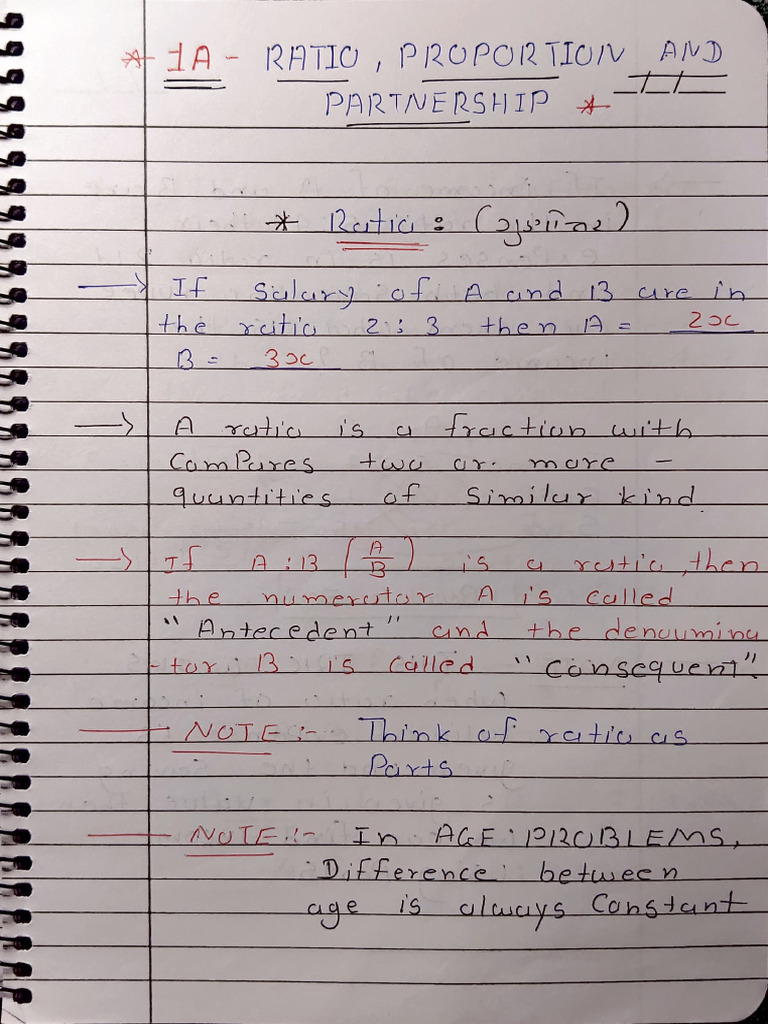 * 1A - RATIO, PROPORTION AND
PARTNERSHIP *
* Ratio: (ગુણોત્તર)
→ If Salary of A and B are in
the ratio 2:3 then A = 2x
B = 3x
→ A ratio is a fraction with
Compares two or more -
quantities of Similar kind
→ If A:B (A/B) is a ratio, then
the numerator A is called
"Antecedent" and the denoumina
-tor B is called "Consequent".
NOTE :- Think of ratio as
Parts
NOTE :- In AGE PROBLEMS,
Difference between
age is always Constant